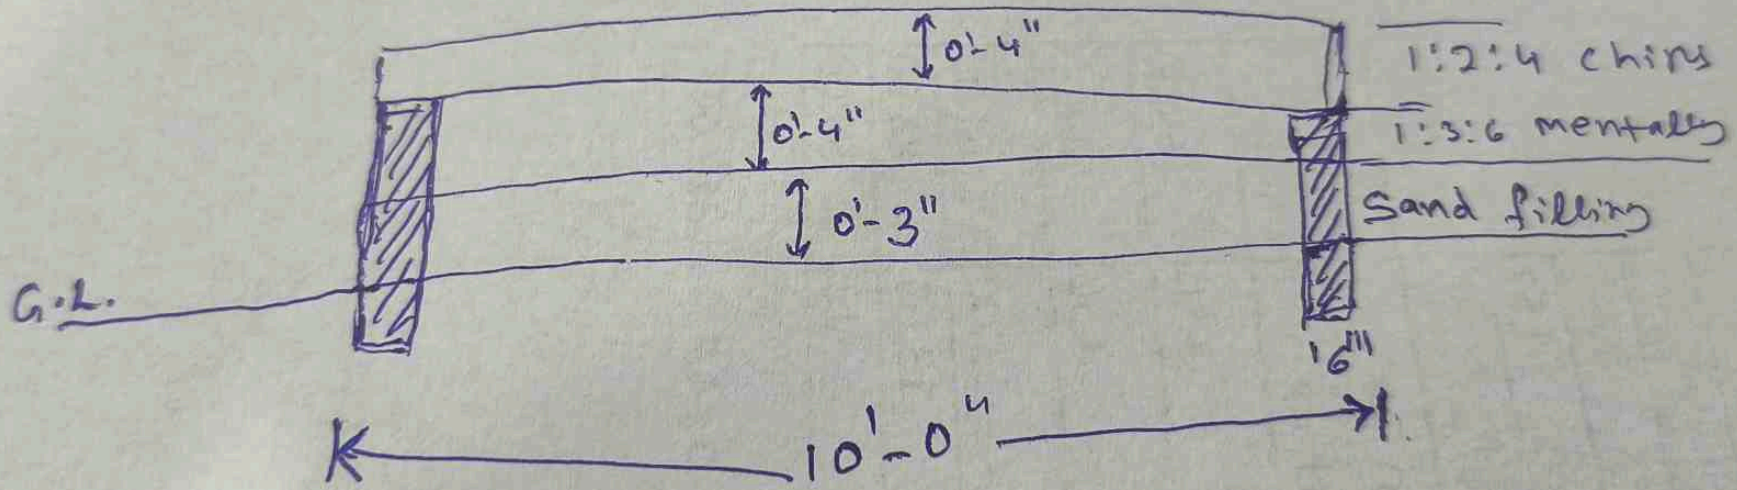 0'-4"
1:2:4 chips
0'-4"
1:3:6 mentally
0'-3"
Sand filling
G.L.
'6"'
10'-0"